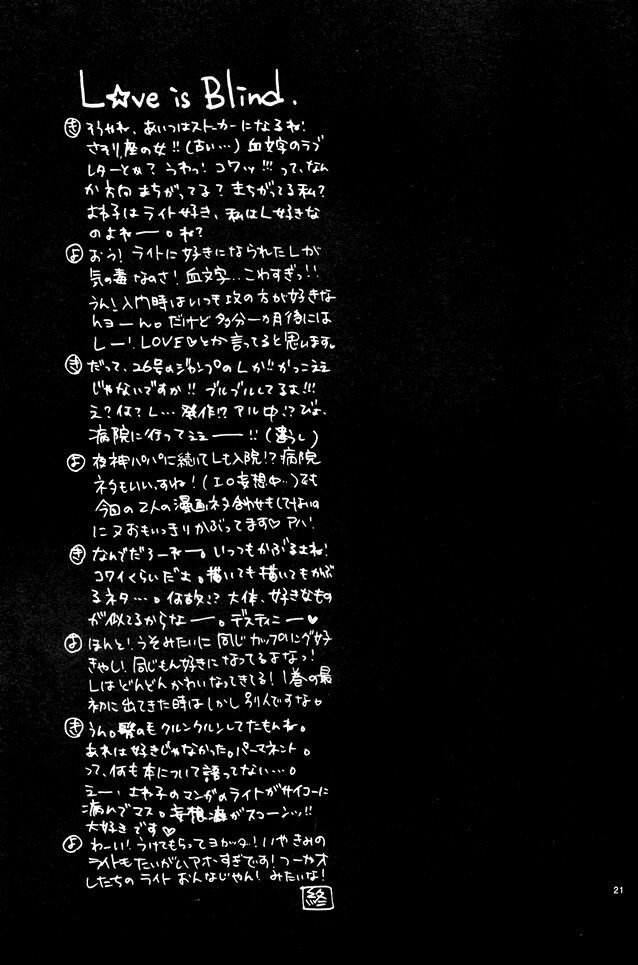 L☆ve is Blind.
き そうかね、あいつはストーカーになるね!
さそり座の女!!(古い…)血文字のラブ
レターとか? うわっ! コワッ!!! って、なん
か方向まちがってる? まちがってる私?
よね子はライト好き、私はL好きな
のよねーー。ね?
よ おう! ライトに好きになられたLが
気の毒なのさ! 血文字…こわすぎっ!!
うん! 入門時はいつも攻の方が好きな
んよーん。だけど多分一か月後には
Lー! LOVE♡とか言ってると思います。
き だって、26号のジャンプのLが!! かっこええ
じゃないですか!! ブルブルしてるよ!!!
え? なに? L… 発作!? アル中!? びょ、
病院に行ってええーー!!
よ 夜神パパに続いてLも入院!? 病院
ネタもいいっすね! (エロ妄想中…) でも
今回の2人の漫画ネタ合わせもしてないの
にヌおもいっきりかぶってます♡ アハ!
き なんでだろーねー。いっつもかぶるよね!
コワイくらいだよ。描いても描いてもかぶ
るネタ…。何故!? 大体、好きなもの
が似てるからなーー。デスティニー♥
よ ほんと! うそみたいに同じカップリング好
きやし! 同じもん好きになってるよなっ!
Lはどんどんかわいなってきてる! 1巻の最
初に出てきた時はしかし別人ですな。
き うん。髪の毛クルンクルンしてたもんね。
あれは好きじゃなかった。パーマネント。
って、何も本について語ってない…。
えー、よね子のマンガのライトがサイコーに
病んでマス。妄想癖がスコーンッ!!
大好きです♡
よ わーい! うけてもらってヨカッター! いやきみの
ライトもたいがいアホすぎです! つーかオ
レたちのライト おんなじゃん! みたいな!
終
21